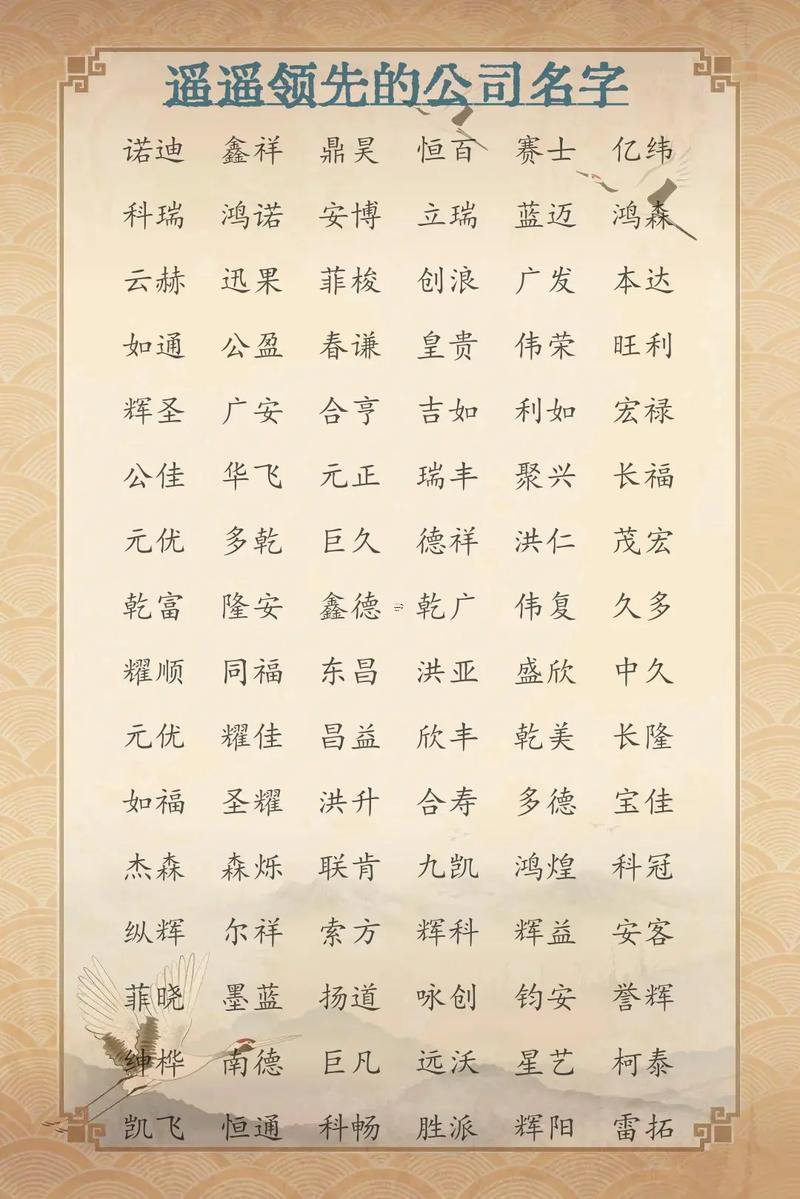 遥遥领先的公司名字
诺迪 鑫祥 鼎昊 恒百 赛士 亿纬
科瑞 鸿诺 安博 立瑞 蓝迈 鸿森
云赫 迅果 菲梭 创浪 广发 本达
如通 公盈 春谦 皇贵 伟荣 旺利
辉圣 广安 合亨 吉如 利如 宏禄
公佳 华飞 元正 瑞丰 聚兴 长福
元优 多乾 巨久 德祥 洪仁 茂宏
乾富 隆安 鑫德 乾广 伟复 久多
耀顺 同福 东昌 洪亚 盛欣 中久
元优 耀佳 昌益 欣丰 乾美 长隆
如福 圣耀 洪升 合寿 多德 宝佳
杰森 森烁 联肯 九凯 鸿煌 科冠
纵辉 尔祥 索方 辉科 辉益 安客
菲晓 墨蓝 扬道 咏创 钧安 誉辉
绅桦 南德 巨凡 远沃 星艺 柯泰
凯飞 恒通 科畅 胜派 辉阳 雷拓